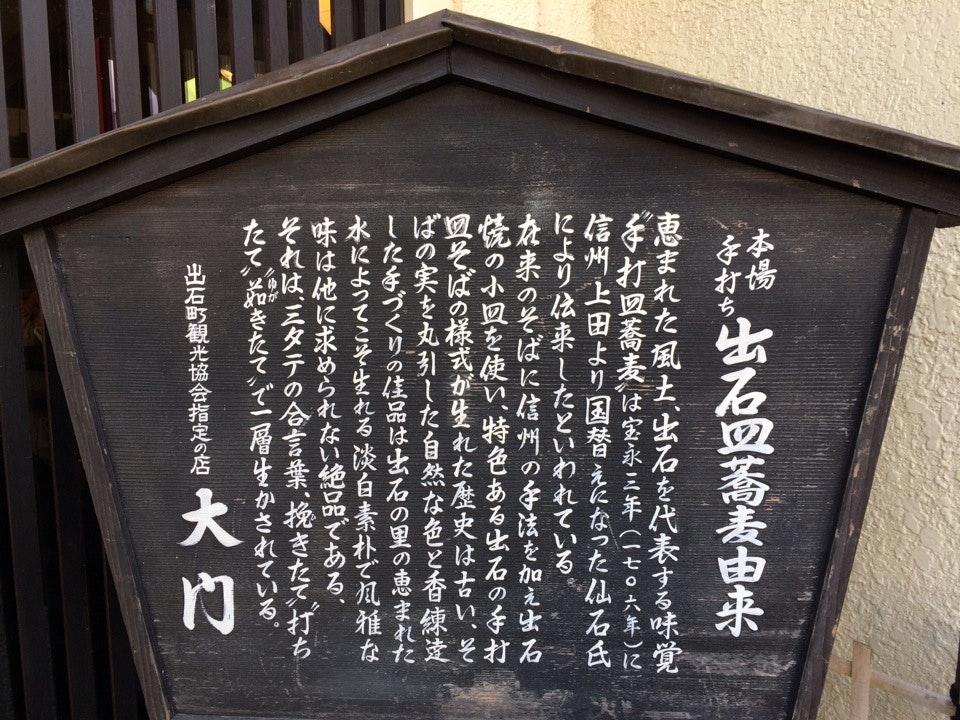 本場
手打ち
出石皿蕎麦由来
恵まれた風土、出石を代表する味覚
〝手打皿蕎麦〟は宝永三年(一七〇六年)に
信州上田より国替えになった仙石氏
により伝来したといわれている。
在来のそばに信州の手法を加え出石
焼の小皿を使い、特色ある出石の手打
皿そばの様式が生れた歴史は古い、そ
ばの実を丸引した自然な色と香練達
した手づくりの佳品は出石の里の恵まれた
水によってこそ生れる淡白素朴で風雅な
味は他に求められない絶品である、
それは、三タテの合言葉、挽きたて〟〝打ち
たて〟〝茹きたて〟で一層生かされている。
ゆが
出石町観光協会指定の店
大門